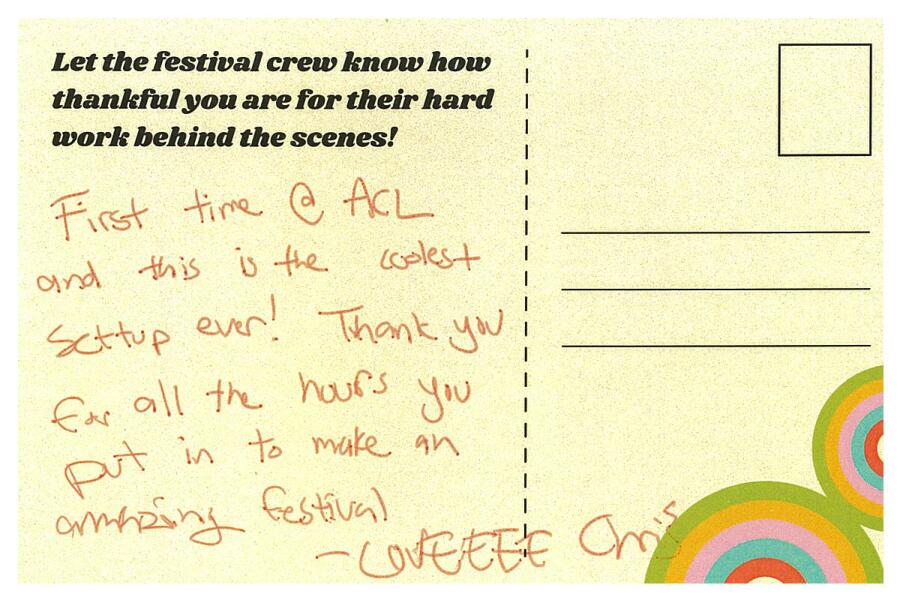 Let the festival crew know how
thankful you are for their hard
work behind the scenes!
First time @ ACL
and this is the coolest
settup ever! Thank you
for all the hours you
put in to make an
amazing festival
- LOVEEEEE Chris